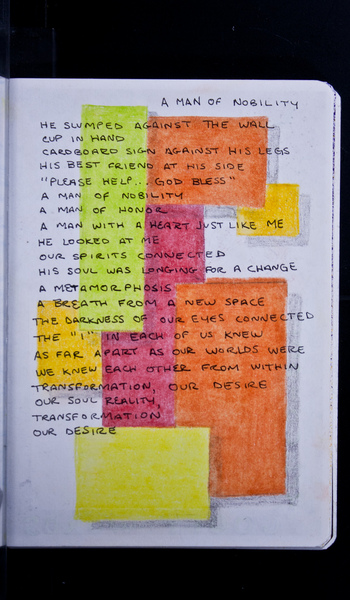 A MAN OF NOBILITY
HE SLUMPED AGAINST THE WALL
CUP IN HAND
CARDBOARD SIGN AGAINST HIS LEGS
HIS BEST FRIEND AT HIS SIDE
"PLEASE HELP... GOD BLESS"
A MAN OF NOBILITY
A MAN OF HONOR
A MAN WITH A HEART JUST LIKE ME
HE LOOKED AT ME
OUR SPIRITS CONNECTED
HIS SOUL WAS LONGING FOR A CHANGE
A METAMORPHOSIS
A BREATH FROM A NEW SPACE
THE DARKNESS OF OUR EYES CONNECTED
THE "I" IN EACH OF US KNEW
AS FAR APART AS OUR WORLDS WERE
WE KNEW EACH OTHER FROM WITHIN
TRANSFORMATION, OUR DESIRE
OUR SOUL REALITY,
TRANSFORMATION
OUR DESIRE